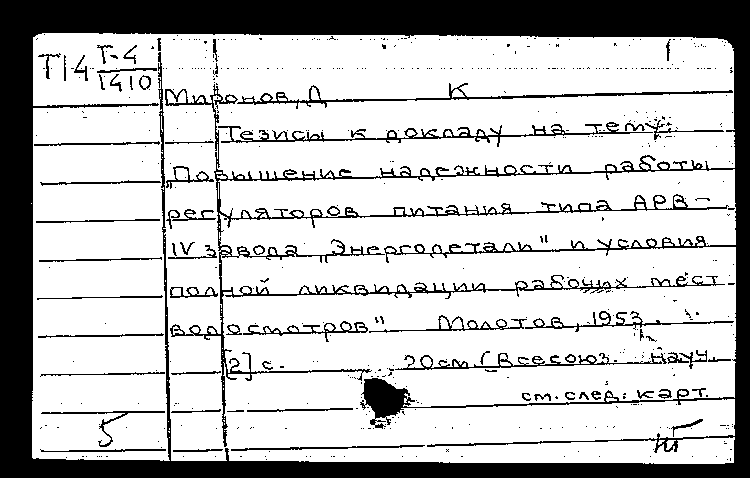 Т14 Т-4
1410
Миронов, Д К
Тезисы к докладу на тему:
„Повышение надежности работы
регуляторов питания типа АРВ-
IV завода „Энергодетали" и условия
полной ликвидации рабочих мест
водосмотров". Молотов, 1953.
[2] с. 20 см. (Всесоюз. науч.
см. след. карт.
5